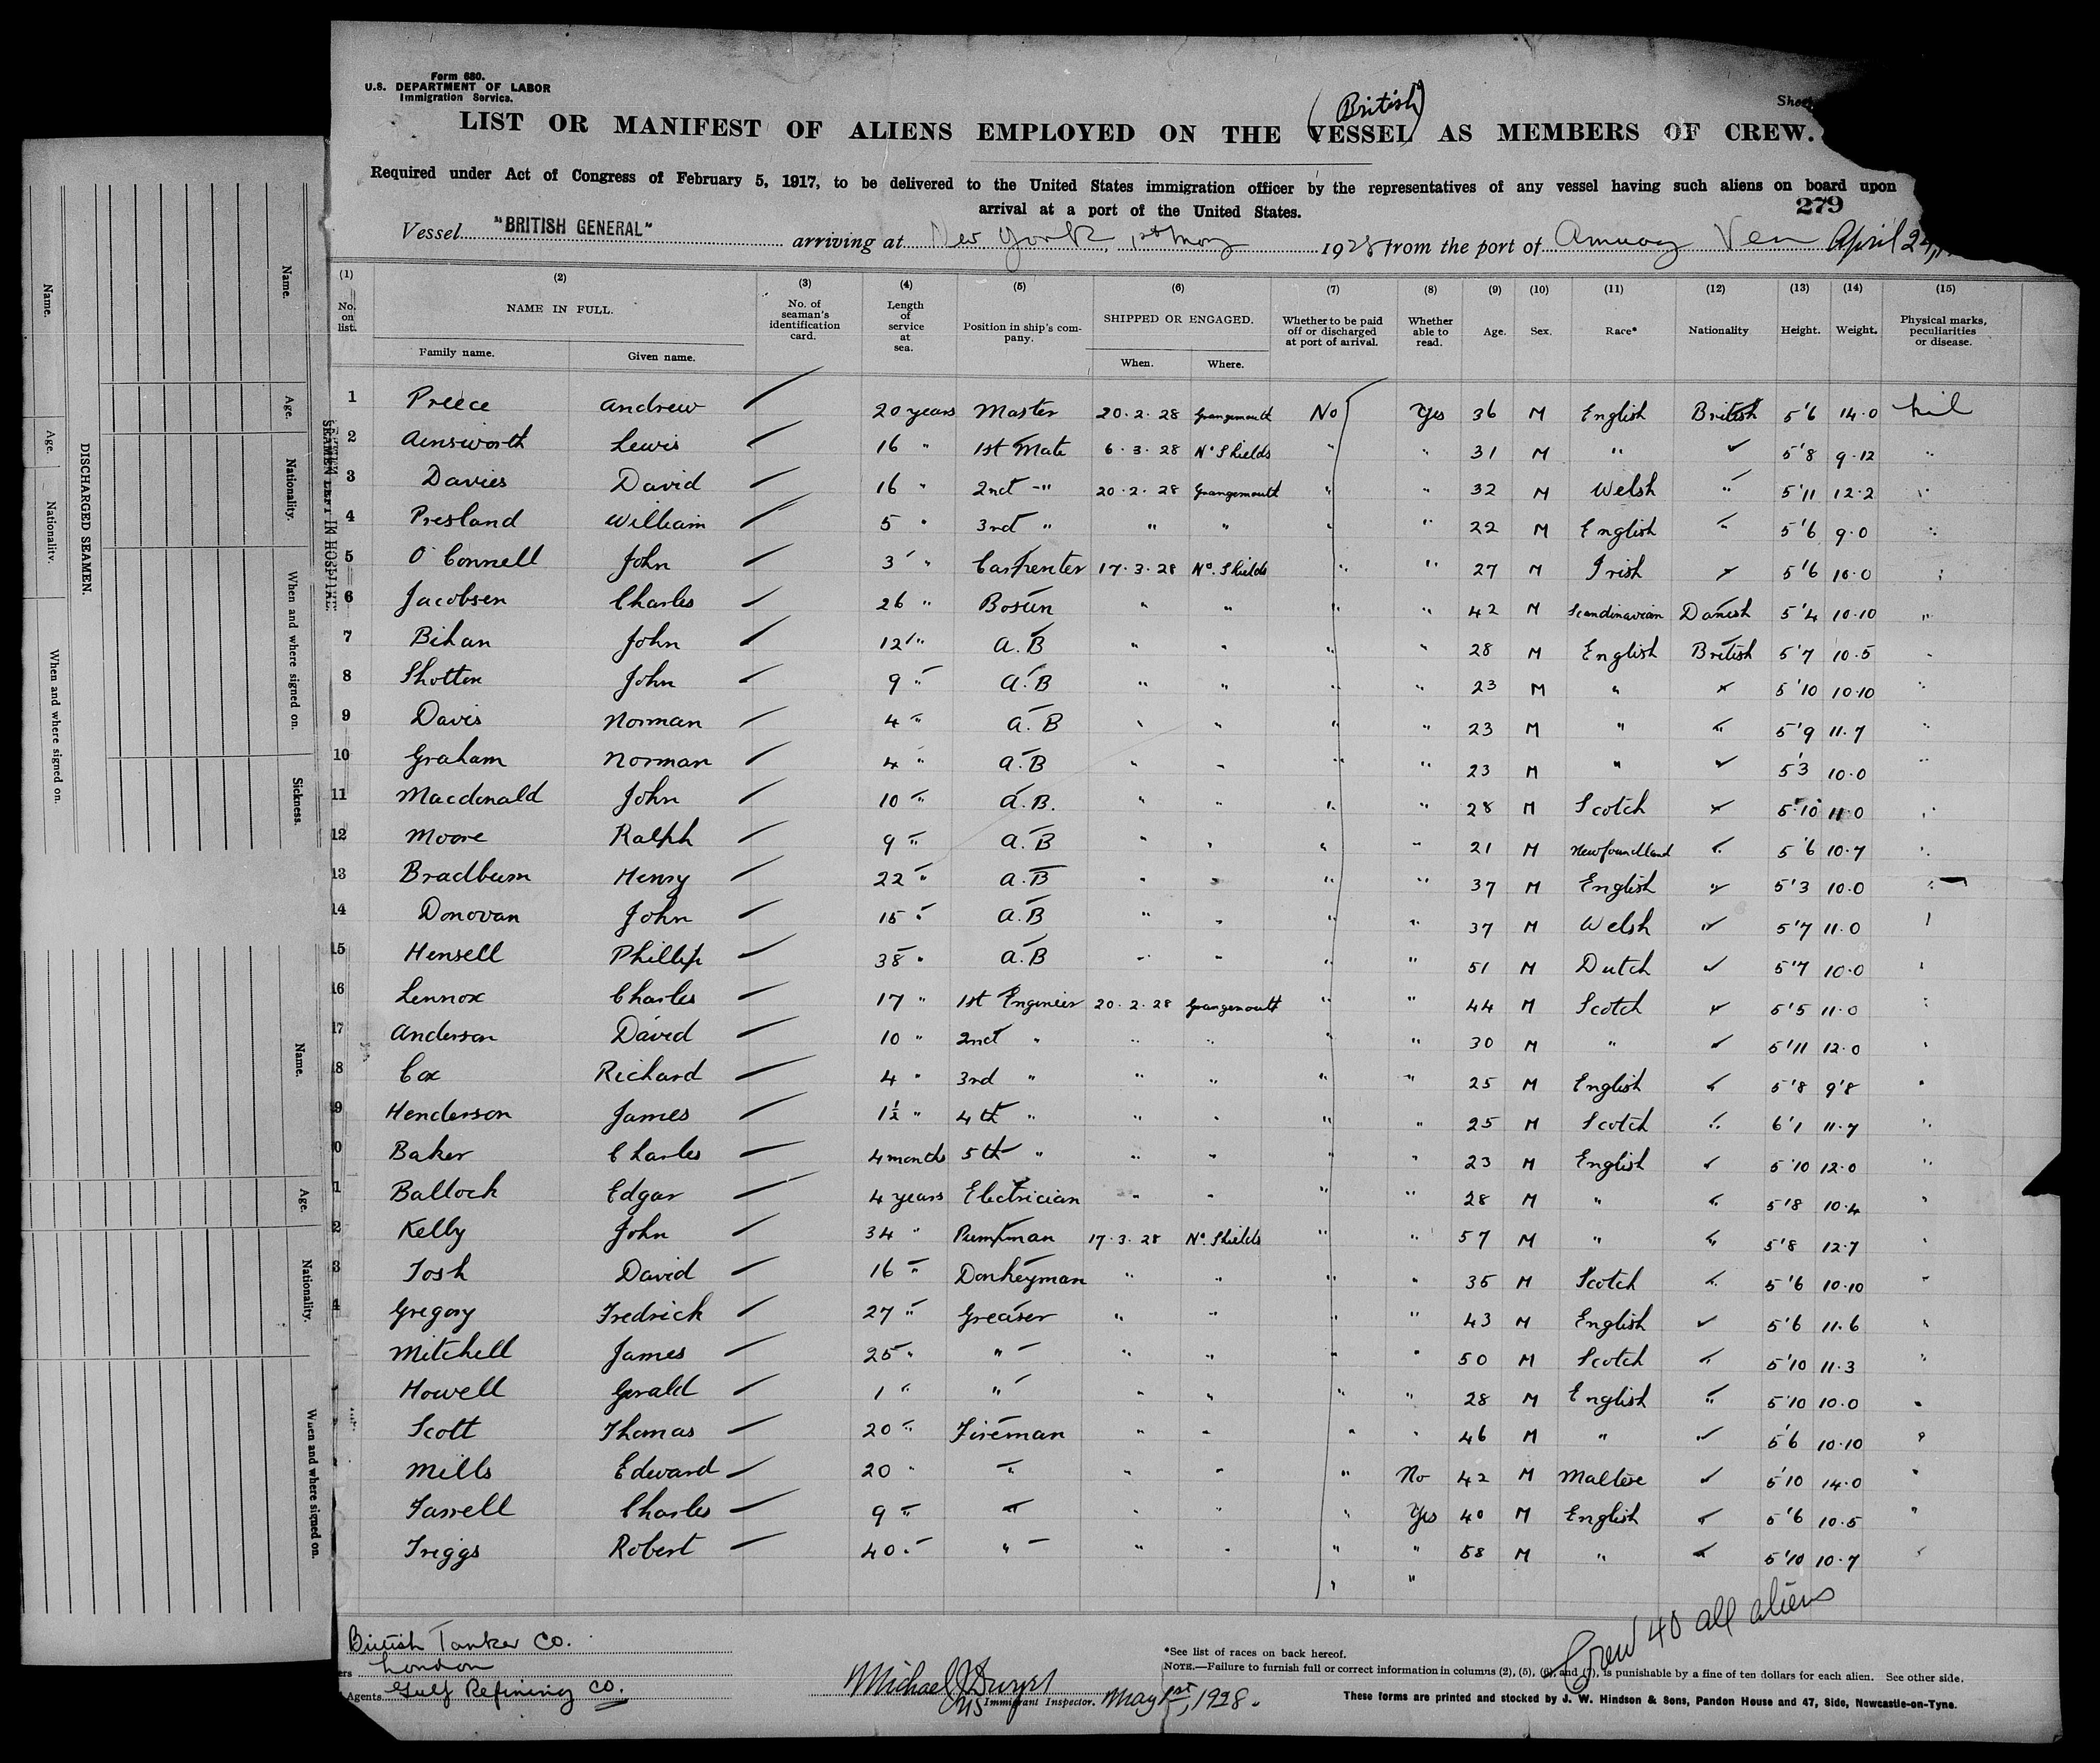 Form 680.
U.S. DEPARTMENT OF LABOR
Immigration Service.
(British)
LIST OR MANIFEST OF ALIENS EMPLOYED ON THE VESSEL AS MEMBERS OF CREW.
Required under Act of Congress of February 5, 1917, to be delivered to the United States immigration officer by the representatives of any vessel having such aliens on board upon
arrival at a port of the United States.
279
Vessel "BRITISH GENERAL" arriving at New York, 1st May 1928 from the port of Amuay Ven April 24,
(1) (2) (3) (4) (5) (6) (7) (8) (9) (10) (11) (12) (13) (14) (15)
No. on list. NAME IN FULL. No. of seaman's identification card. Length of service at sea. Position in ship's company. SHIPPED OR ENGAGED. Whether to be paid off or discharged at port of arrival. Whether able to read. Age. Sex. Race* Nationality Height. Weight. Physical marks, peculiarities or disease.
Family name. Given name. When. Where.
1 Preece Andrew 20 years Master 20.2.28 Grangemouth No Yes 36 M English British 5'6 14.0 nil
2 Ainsworth Lewis 16 " 1st Mate 6.3.28 No Shields " " 31 M " 5'8 9.12 "
3 Davies David 16 " 2nd " 20.2.28 Grangemouth " " 32 M Welsh " 5'11 12.2 "
4 Presland William 5 " 3rd " " " " " 22 M English " 5'6 9.0 "
5 O'Connell John 3 " Carpenter 17.3.28 No. Shields " " 27 M Irish 5'6 10.0 "
6 Jacobsen Charles 26 " Bosun " " " " 42 M Scandinavian Danish 5'4 10.10 "
7 Bihan John 12 " A.B " " " " 28 M English British 5'7 10.5 "
8 Shotton John 9 " A.B " " " " 23 M " 5'10 10.10 "
9 Davis Norman 4 " A.B " " " " 23 M " " 5'9 11.7 "
10 Graham Norman 4 " A.B " " " " 23 M " 5'3 10.0 "
11 Macdonald John 10 " A.B. " " " " 28 M Scotch 5'10 11.0 "
12 Moore Ralph 9 " A.B " " " " 21 M Newfoundland " 5'6 10.7 "
13 Bradburn Henry 22 " A.B " " " " 37 M English " 5'3 10.0 "
14 Donovan John 15 " A.B " " " " 37 M Welsh " 5'7 11.0 "
15 Hensell Phillip 38 " A.B " " " " 51 M Dutch 5'7 10.0 "
16 Lennox Charles 17 " 1st Engineer 20.2.28 Grangemouth " " 44 M Scotch 5'5 11.0 "
17 Anderson David 10 " 2nd " " " " " 30 M " 5'11 12.0 "
8 Cox Richard 4 " 3rd " " " " " 25 M English " 5'8 9'8 "
9 Henderson James 1½ " 4th " " " " " 25 M Scotch " 6'1 11.7 "
0 Baker Charles 4 months 5th " " " " " 23 M English 5'10 12.0 "
1 Balloch Edgar 4 years Electrician " " " " 28 M " " 5'8 10.4 "
2 Kelly John 34 " Pumpman 17.3.28 No. Shields " " 57 M " " 5'8 12.7 "
3 Tosh David 16 " Donkeyman " " " " 35 M Scotch " 5'6 10.10 "
4 Gregory Fredrick 27 " Greaser " " " " 43 M English 5'6 11.6 "
Mitchell James 25 " " " " " " 50 M Scotch " 5'10 11.3 "
Howell Gerald 1 " " " " " " 28 M English " 5'10 10.0 "
Scott Thomas 20 " Fireman " " " " 46 M " 5'6 10.10 "
Mills Edward 20 " " " " " No 42 M Maltese 5'10 14.0 "
Farrell Charles 9 " " " " " Yes 40 M English 5'6 10.5 "
Triggs Robert 40 " " " " " " 58 M " 5'10 10.7 "
" "
Crew 40 all aliens
British Tanker Co.
ers London
Agents Gulf Refining Co.
Michael
US Immigrant Inspector. May 1st, 1928.
*See list of races on back hereof.
NOTE.—Failure to furnish full or correct information in columns (2), (5), (6), and (7), is punishable by a fine of ten dollars for each alien. See other side.
These forms are printed and stocked by J. W. Hindson & Sons, Pandon House and 47, Side, Newcastle-on-Tyne.
DISCHARGED SEAMEN.
Name. Age. Nationality. When and where signed on.
SEAMEN LEFT IN HOSPITAL.
Name. Age. Nationality. When and where signed on. Sickness.
Name. Age. Nationality. When and where signed on.